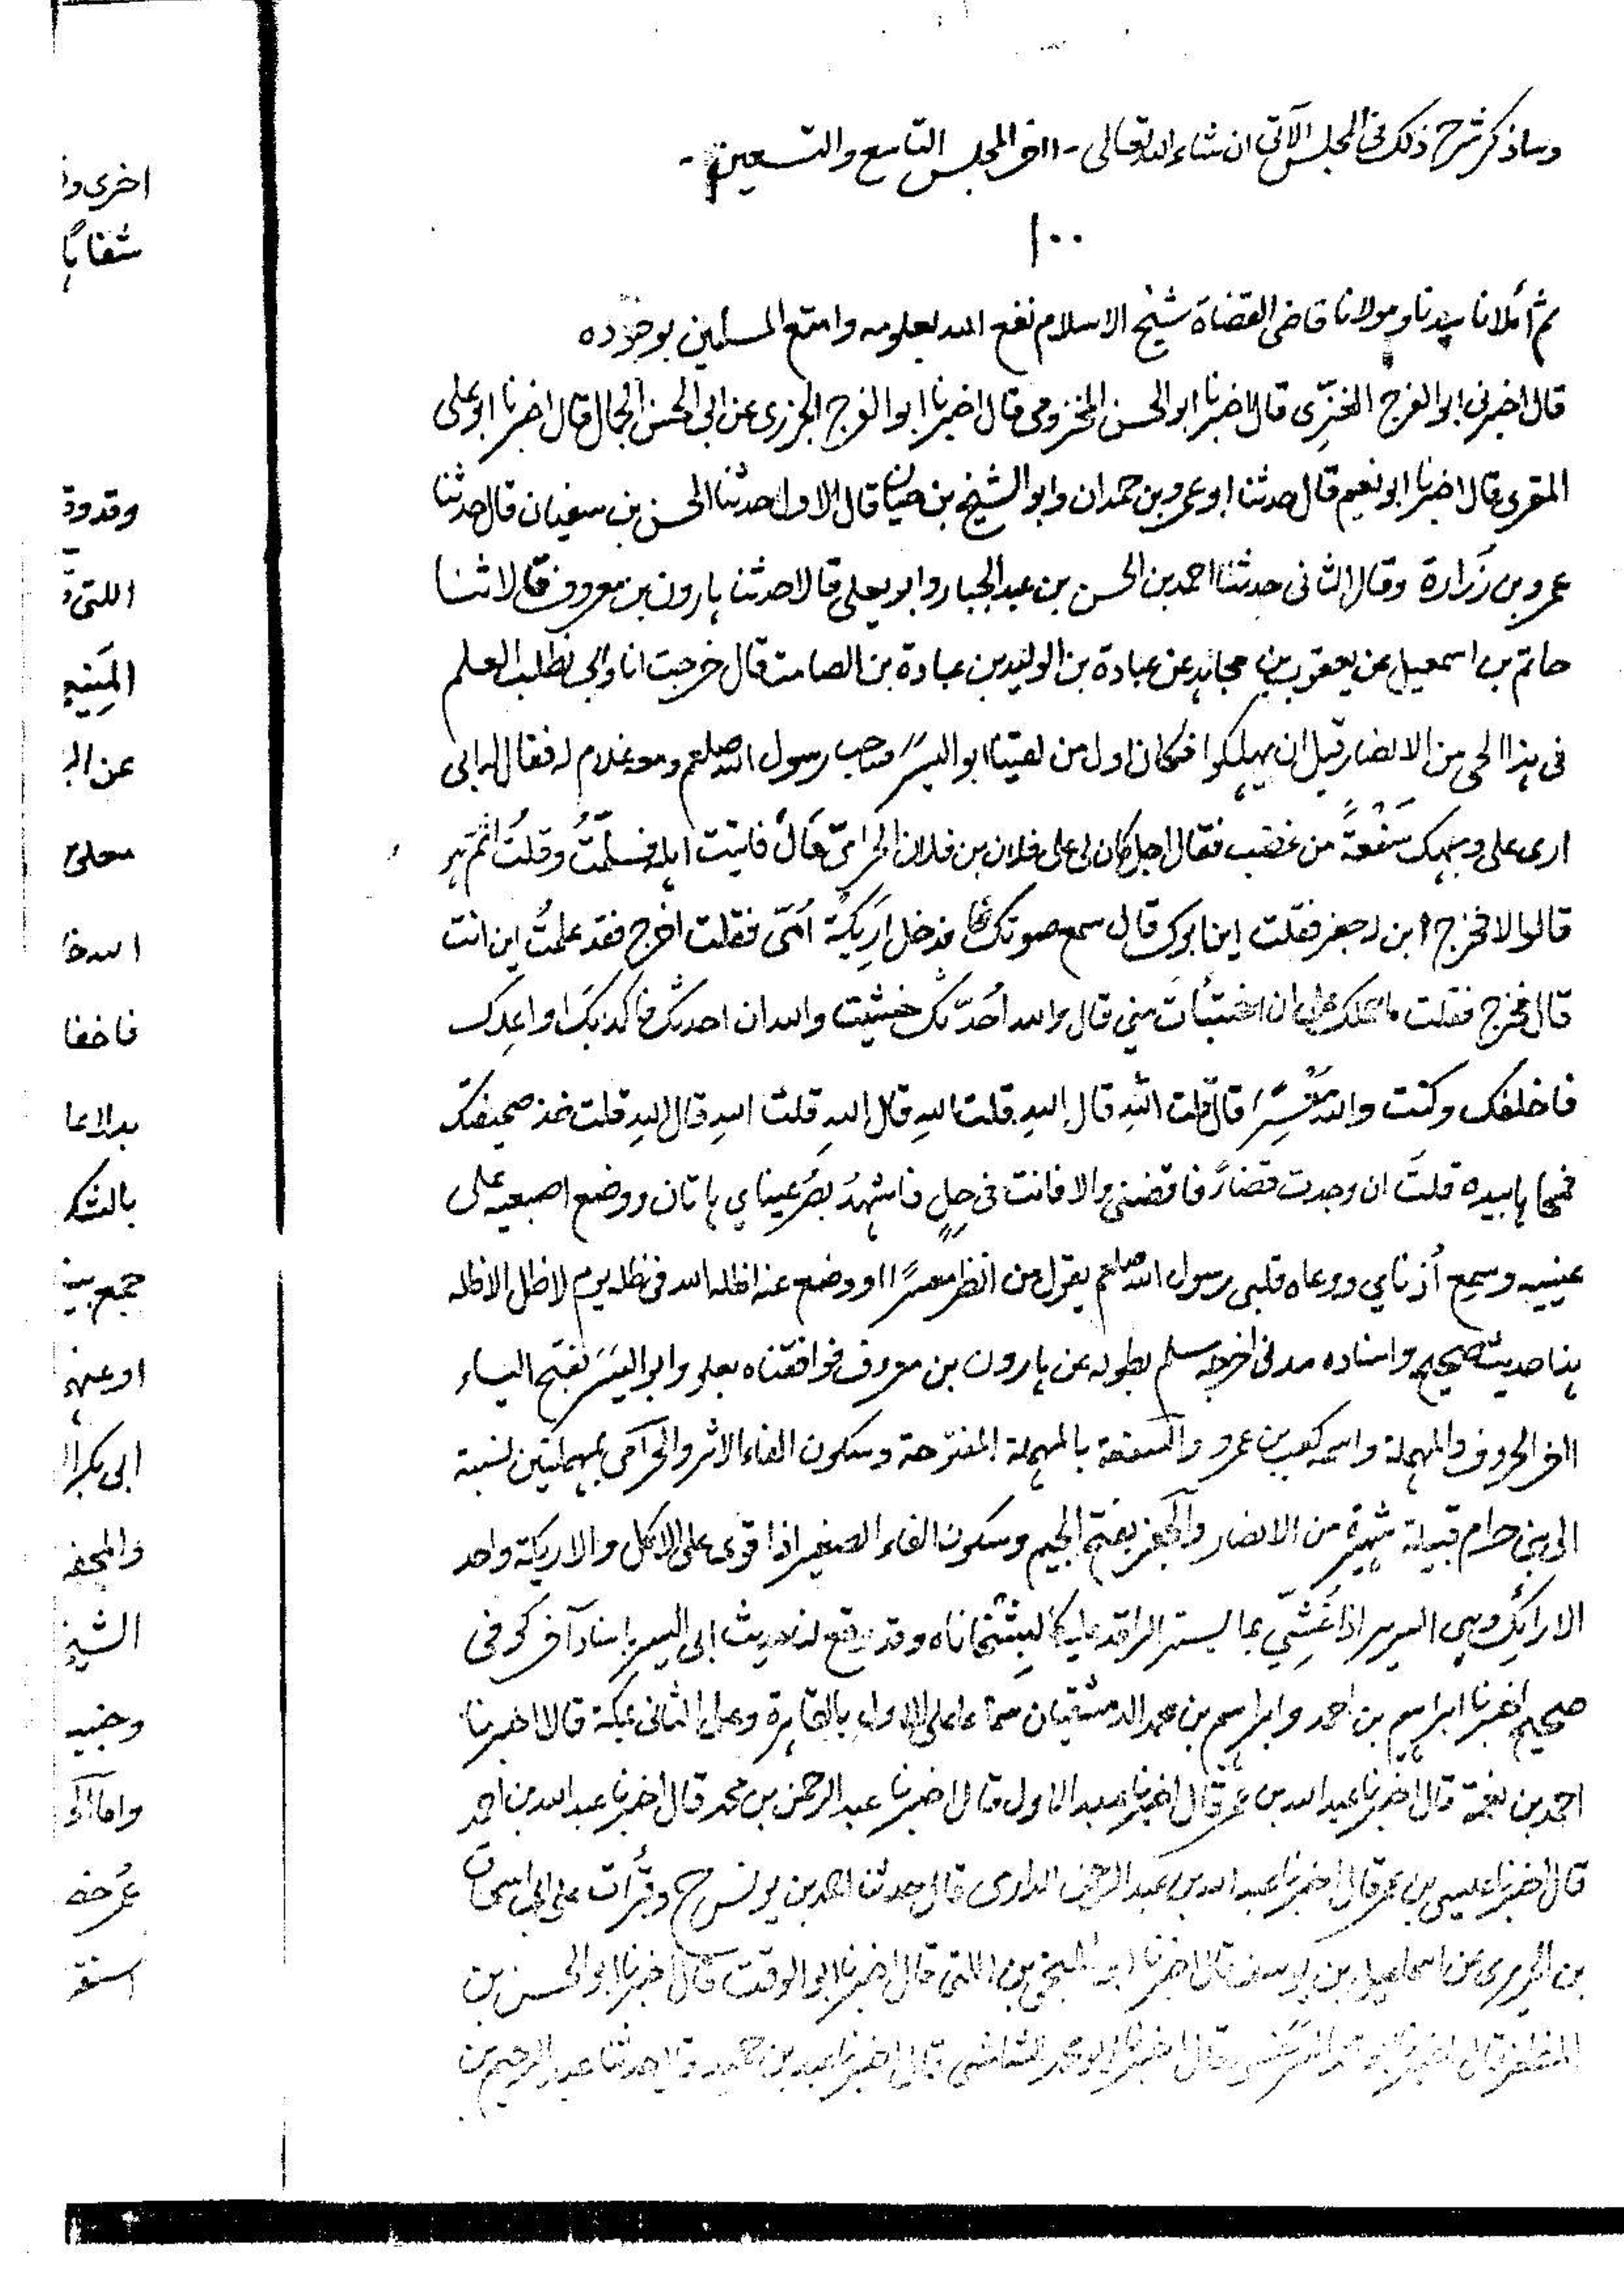 وساذكر شرح ذلك فى المجلس الآتى ان شاء الله تعالى - اخر المجلس التاسع والتسعين -
١٠٠
ثم أملانا سيدنا ومولانا قاضى القضاة شيخ الاسلام نفع الله بعلومه وامتع المسلمين بوجوده
قال اخبرنى ابو الفرج الغزّى قال اخبرنا ابو الحسن المخزومى قال اخبرنا ابو الفرج الجزرى عن ابى الحسن الجمال قال اخبرنا ابو على
المقرى قال اخبرنا ابو نعيم قال حدثنا ابو عمرو بن حمدان وابو الشيخ بن حيان قال الاول حدثنا الحسن بن سفيان قال حدثنا
عمرو بن زُرارة وقال الثانى حدثنا احمد بن الحسن بن عبد الجبار وابو يعلى قالا حدثنا هارون بن معروف قالا ثنا
حاتم بن اسمعيل عن يعقوب بن مجاهد عن عبادة بن الوليد بن عبادة بن الصامت قال خرجت انا وابى نطلب العلم
فى هذا الحى من الانصار قبل ان يهلكوا فكان اول من لقينا ابو اليسر صاحب رسول الله صلعم ومعه غلام له فقال له ابى
ارى على وجهك سَفْعَةً من غضب فقال اجل كان لى على فلان بن فلان الحرامىّ مَالٌ فاتيت اهله فسلّمتُ وقلتُ اثَمَّ هو
قالوا لا فخرج ابن له جفر فقلت اين ابوك قال سمع صوتك فدخل اريكة اُمّى فقلت اخرج فقد علمتُ اين انت
قال فخرج فقلت ما حملك على ان اختبأت منى قال والله اُحدّثك خشيت والله ان احدثك فاكذبك او اعدك
فاخلفك وكنت والله مُعْسِرًا قال قلت اللهِ قال اللهِ قلت اللهِ قال اللهِ قلت اللهِ قال اللهِ قلت خذ صحيفتك
فمحاها بيده قلتَ ان وجدت قضاءً فاقضنى والا فانت فى حلٍ فاشهدُ بصُر عيناي هاتان ووضع اصبعيه على
عينيه وسمع اُذناي ووعاه قلبى رسول الله صلعم يقول من انظر معسرًا او وضع عنه اظله الله فى ظله يوم لا ظل الا ظله
هذا حديث صحيح واسناده مدنى اخرجه مسلم بطوله عن هارون بن معروف فوافقناه بعلو وابو اليسَر بفتح الياء
اخر الحروف والمهملة واسمه كعب بن عمرو والسفعة بالمهملة المفتوحة وسكون الفاء الاثر والحرامى بمهملتين نسبة
الى بنى حرام قبيلة شهيرة من الانصار والجفر بفتح الجيم وسكون الفاء الصغير اذا قوى على الاكل والاريكة واحد
الارايك وهى السرير اذا غُشِّي بما يستر الراقد عليه وقد وقع لنا حديث ابى اليسر باسناد آخر
صحيح اخبرنا ابراهيم بن احمد وابراهيم بن محمد الدمشقيان سماعا على الاول بالقاهرة وعلى الثانى بمكة قالا اخبرنا
احمد بن نعمة قال اخبرنا عبد الله بن عمر قال اخبرنا عبد الاول قال اخبرنا عبد الرحمن بن محمد قال اخبرنا عبد الله بن احمد
قال اخبرنا عيسى بن عمر قال اخبرنا عبد الله بن عبد الرحمن الدارمى قال حدثنا احمد بن يونس ح وقرأت على ابى اسحاق
بن الحريرى عن اسماعيل بن يوسف قال اخبرنا ابو المنجى بن اللتى قال اخبرنا ابو الوقت قال اخبرنا ابو الحسن بن
المظفر قال اخبرنا ابو محمد السرخسى قال اخبرنا ابو محمد الشاشى قال اخبرنا عبد بن حميد قال حدثنا عبد الرحيم بن
اخرى
وقدوة
اللتى
عن
الله
فاخفا
او عنه
الشيخ
وجنبه